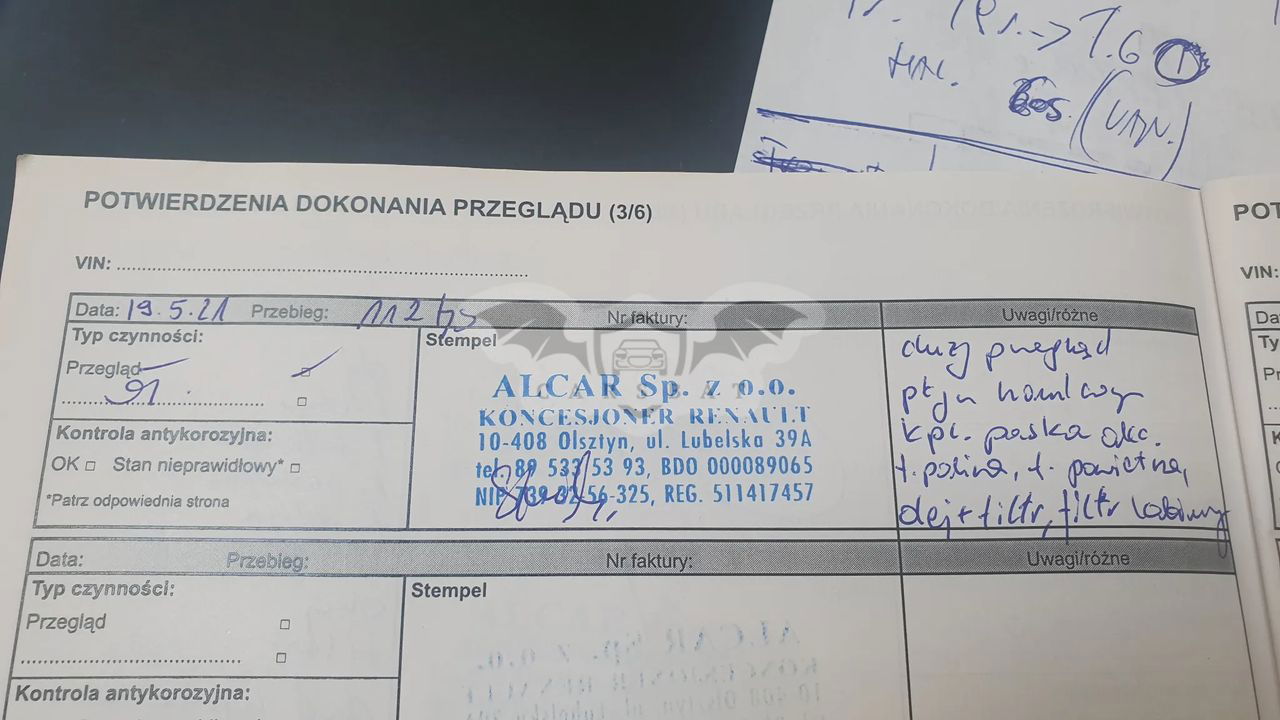 T.6 1
(UAN.)
POTWIERDZENIA DOKONANIA PRZEGLĄDU (3/6)
POT
VIN:
VIN:
Data: 19.5.21 Przebieg: 112 Nr faktury: Uwagi/różne
Typ czynności:
Stempel
Przegląd
91
Kontrola antykorozyjna:
OK Stan nieprawidłowy*
*Patrz odpowiednia strona
CARSBAT
ALCAR Sp. z o.o.
KONCESJONER RENAULT
10-408 Olsztyn, ul. Lubelska 39A
tel. 89 533 53 93, BDO 000089065
NIP 739-02-56-325, REG. 511417457
duży przegląd
płyn hamulcowy
kpl. paska akc.
f. paliwa, f. powietrza,
olej + filtr, filtr kabinowy
Data: Przebieg: Nr faktury: Uwagi/różne
Typ czynności:
Stempel
Przegląd
Kontrola antykorozyjna: